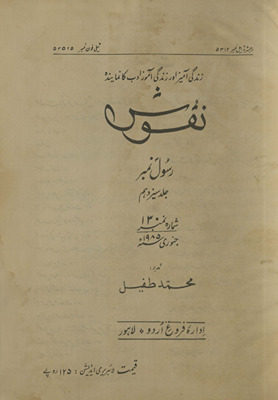 رجسٹرڈ ایل نمبر ۵۳۱۲
ٹیلی فون نمبر ۵۲۵۲۵
زندگی آمیز اور زندگی آموز ادب کا نمایندہ
نقوش
رسولؐ نمبر
جلد سیزدہم
شمارہ نمبر ۱۳۰
جنوری ۱۹۸۵ء
مدیر:
محمد طفیل
ادارۂ فروغِ اردو، لاہور
قیمت لائبریری ایڈیشن: ۱۲۵ روپے